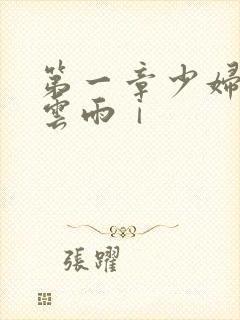 第一章少婦
雲雨｜
張躍